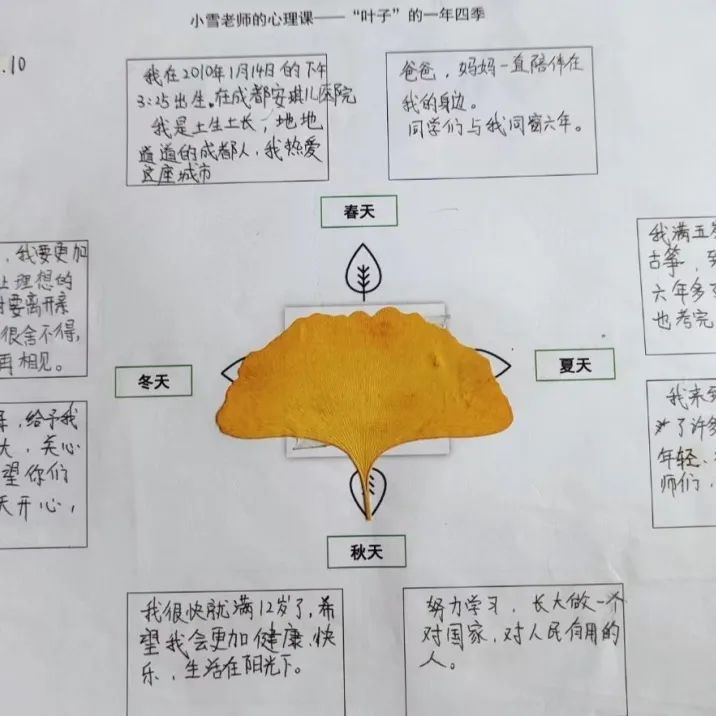 小雪老师的心理课——“叶子”的一年四季
.10
我在2010年1月14日的下午
3:25出生。在成都安琪儿医院
我是土生土长，地地
道道的成都人，我热爱
这座城市
爸爸，妈妈一直陪伴在
我的身边。
同学们与我同窗六年。
春天
，我要更加
上理想的
时要离开亲
很舍不得，
再相见。
我满五岁
古筝，
六年多
也考完
冬天
夏天
，给予我
大，关心
望你们
天开心，
我来到
了许多
年轻、
师们，
秋天
我很快就满12岁了，希
望我会更加健康、快
乐，生活在阳光下。
努力学习，长大做一个
对国家，对人民有用的
人。